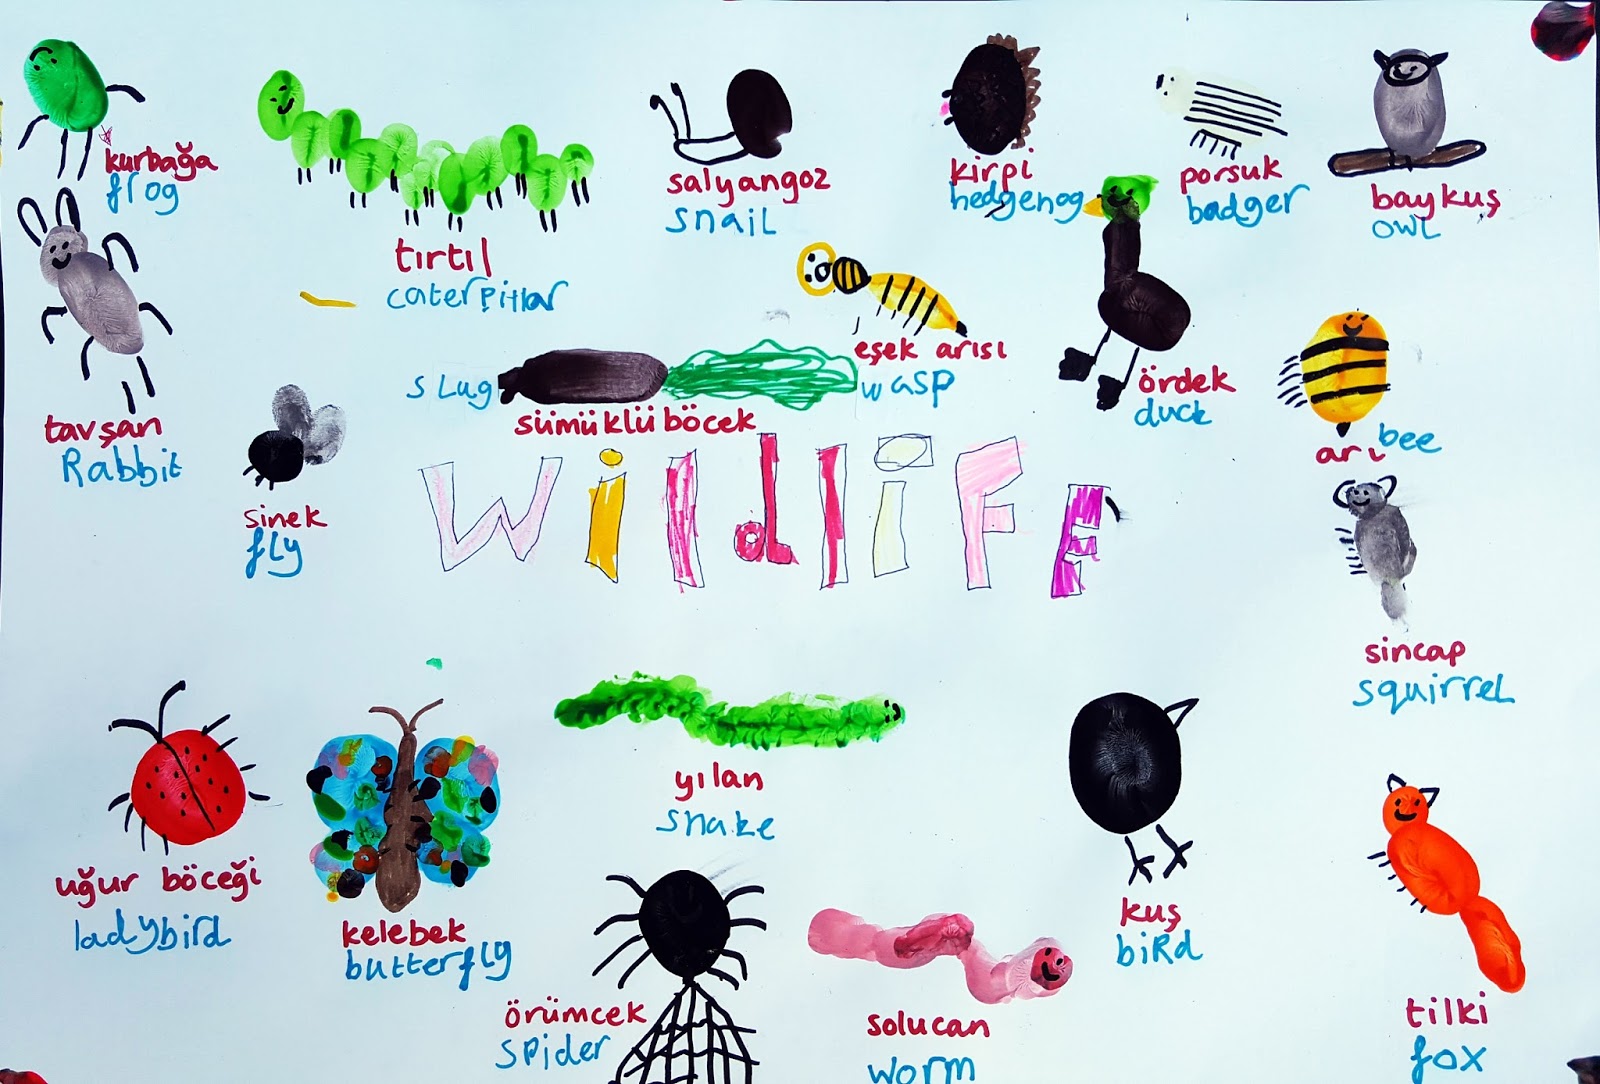 kurbağa
frog
tırtıl
caterpiltar
salyangoz
snaiL
kirpi
hedgehog
porsuk
badger
baykuş
owL
tavşan
Rabbit
sinek
fLy
sLug
sümüklüböcek
eşek arısı
wasp
ördek
duck
arı
bee
wildliFE
sincap
squirreL
uğur böceği
ladybird
kelebek
butterfLy
yılan
snake
örümcek
spider
solucan
worm
kuş
biRd
tilki
fox